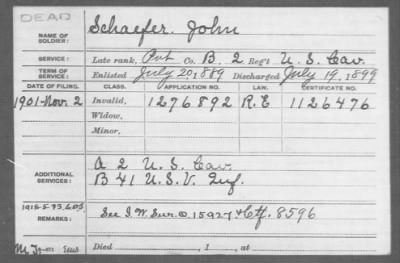 DEAD
NAME OF SOLDIER: Schaefer, John
SERVICE: Late rank, Pvt Co. B, 2 Reg't U. S. Cav.
TERM OF SERVICE: Enlisted July 20, 1889 Discharged July 19, 1899
DATE OF FILING. CLASS. APPLICATION NO. LAW. CERTIFICATE NO.
1901-Nov. 2 Invalid, 1276892 1126476
Widow,
Minor,
ADDITIONAL SERVICES: A 2 U. S. Cav.
B 41 U. S. V. Inf.
REMARKS: See I. W. Sur. O. 15927 & Ctf. 8596
Died , 1 , at